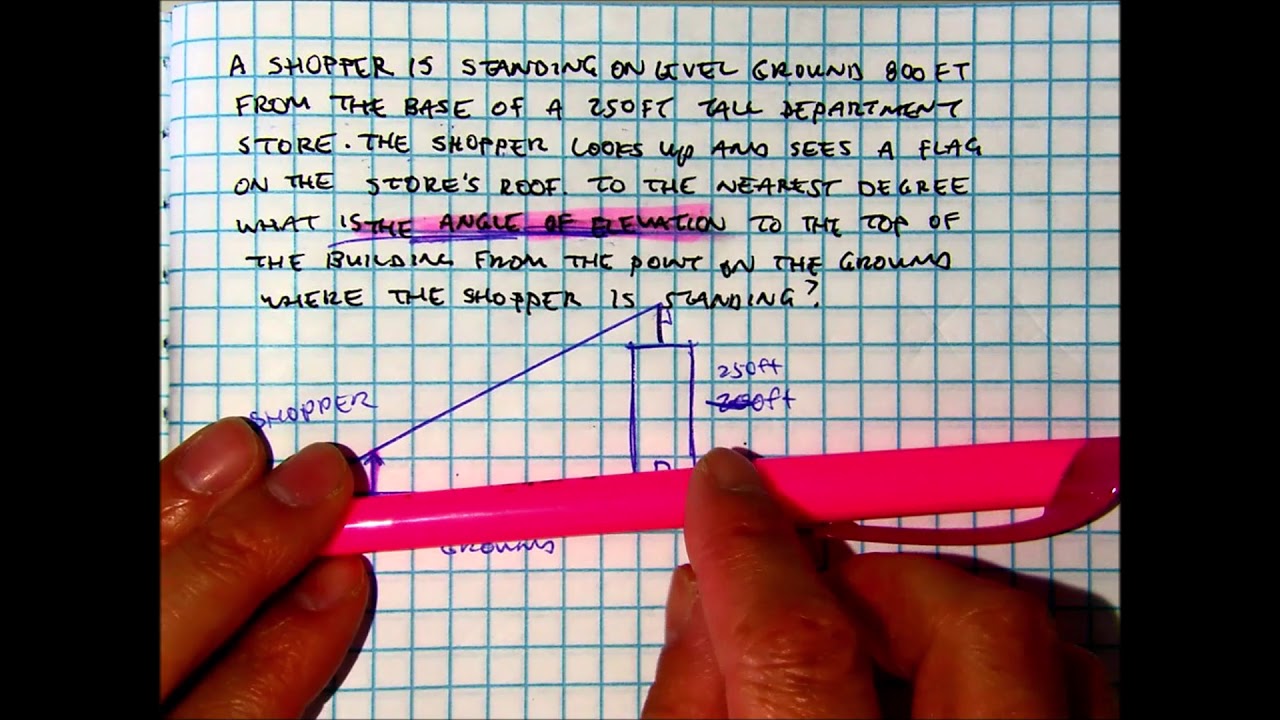 A SHOPPER IS STANDING ON LEVEL GROUND 800 FT
FROM THE BASE OF A 250FT TALL DEPARTMENT
STORE. THE SHOPPER LOOKS UP AND SEES A FLAG
ON THE STORE'S ROOF. TO THE NEAREST DEGREE
WHAT IS THE ANGLE OF ELEVATION TO THE TOP OF
THE BUILDING FROM THE POINT ON THE GROUND
WHERE THE SHOPPER IS STANDING?
250ft
SHOPPER
GROUND